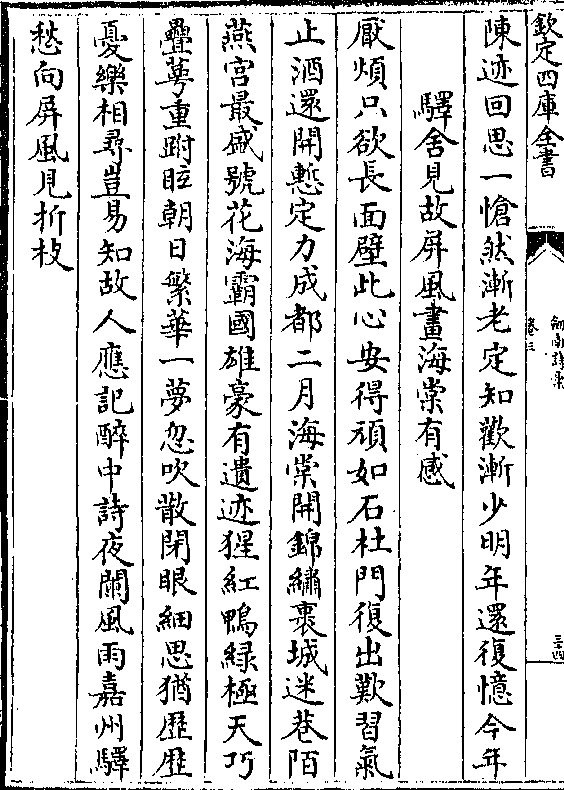 欽定四庫全書
劍南詩槀
卷三
三十四
陳迹回思一愴然漸老定知歡漸少明年還復憶今年
驛舍見故屏風畫海棠有感
厭煩只欲長面壁此心安得頑如石杜門復出歎習氣
止酒還開慙定力成都二月海棠開錦繡裹城迷巷陌
燕宫最盛號花海霸國雄豪有遺迹猩紅鴨緑極天巧
疊萼重跗眩朝日繁華一夢忽吹散閉眼細思猶歴歴
憂樂相尋豈易知故人應記醉中詩夜闌風雨嘉州驛
愁向屏風見折枝